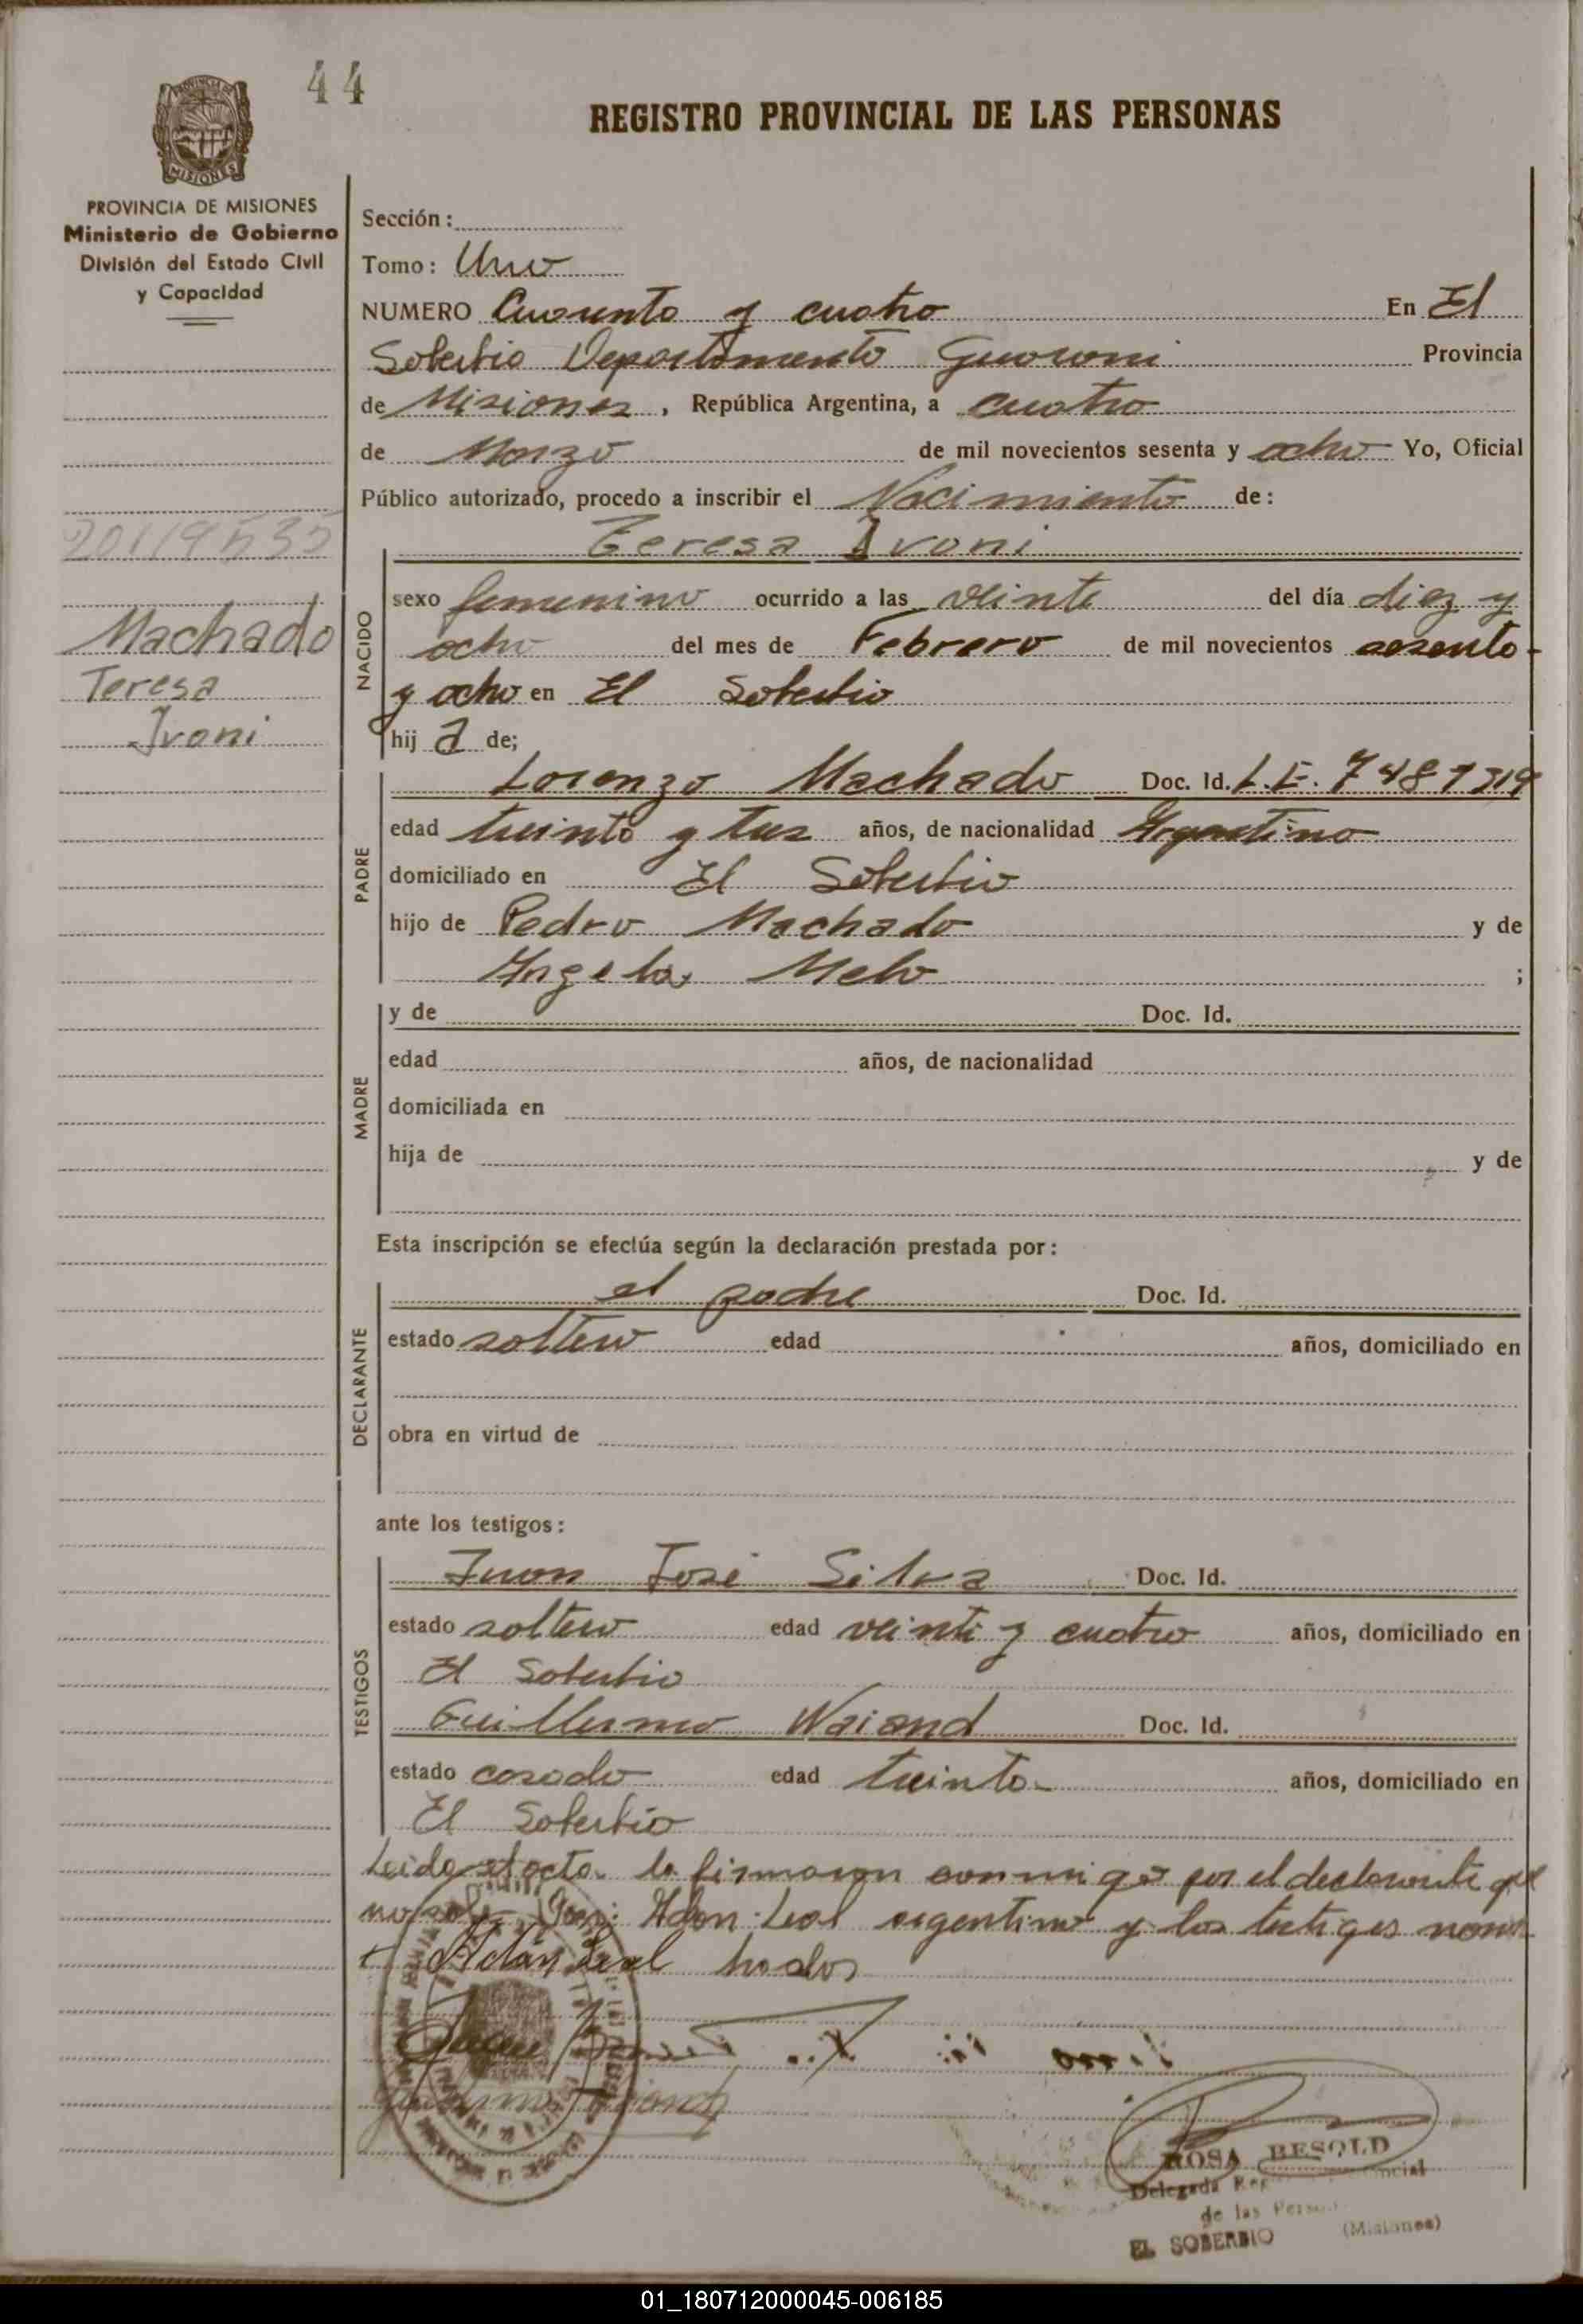 44
REGISTRO PROVINCIAL DE LAS PERSONAS
PROVINCIA DE MISIONES
Ministerio de Gobierno
División del Estado Civil
y Capacidad
Sección:
Tomo: Uno
NUMERO Cuarenta y cuatro En El
Soberbio Departamento Guarani Provincia
de Misiones, República Argentina, a cuatro
de Marzo de mil novecientos sesenta y ocho Yo, Oficial
Público autorizado, procedo a inscribir el Nacimiento de:
Teresa Ivoni
20119535
Machado
Teresa
Ivoni
NACIDO
sexo femenino ocurrido a las veinte del día diez y
ocho del mes de Febrero de mil novecientos sesenta
y ocho en El Soberbio
hij a de;
PADRE
Lorenzo Machado Doc. Id. L.E. 7487319
edad treinta y tres años, de nacionalidad Argentino
domiciliado en El Soberbio
hijo de Pedro Machado y de
Angela Melo ;
MADRE
y de Doc. Id.
edad años, de nacionalidad
domiciliada en
hija de y de
Esta inscripción se efectúa según la declaración prestada por:
DECLARANTE
el padre Doc. Id.
estado soltero edad años, domiciliado en
obra en virtud de
ante los testigos:
TESTIGOS
Juan José Silva Doc. Id.
estado soltero edad veinte y cuatro años, domiciliado en
El Soberbio
Guillermo Waiand Doc. Id.
estado casado edad treinta años, domiciliado en
El Soberbio
Leida el acta la firmaron conmigo por el declarante que
no sabe Adan Leal argentino y los testigos nom
Adan Leal brados
ROSA BESOLD
Delegada
de las
EL SOBERBIO (Misiones)
01_180712000045-006185